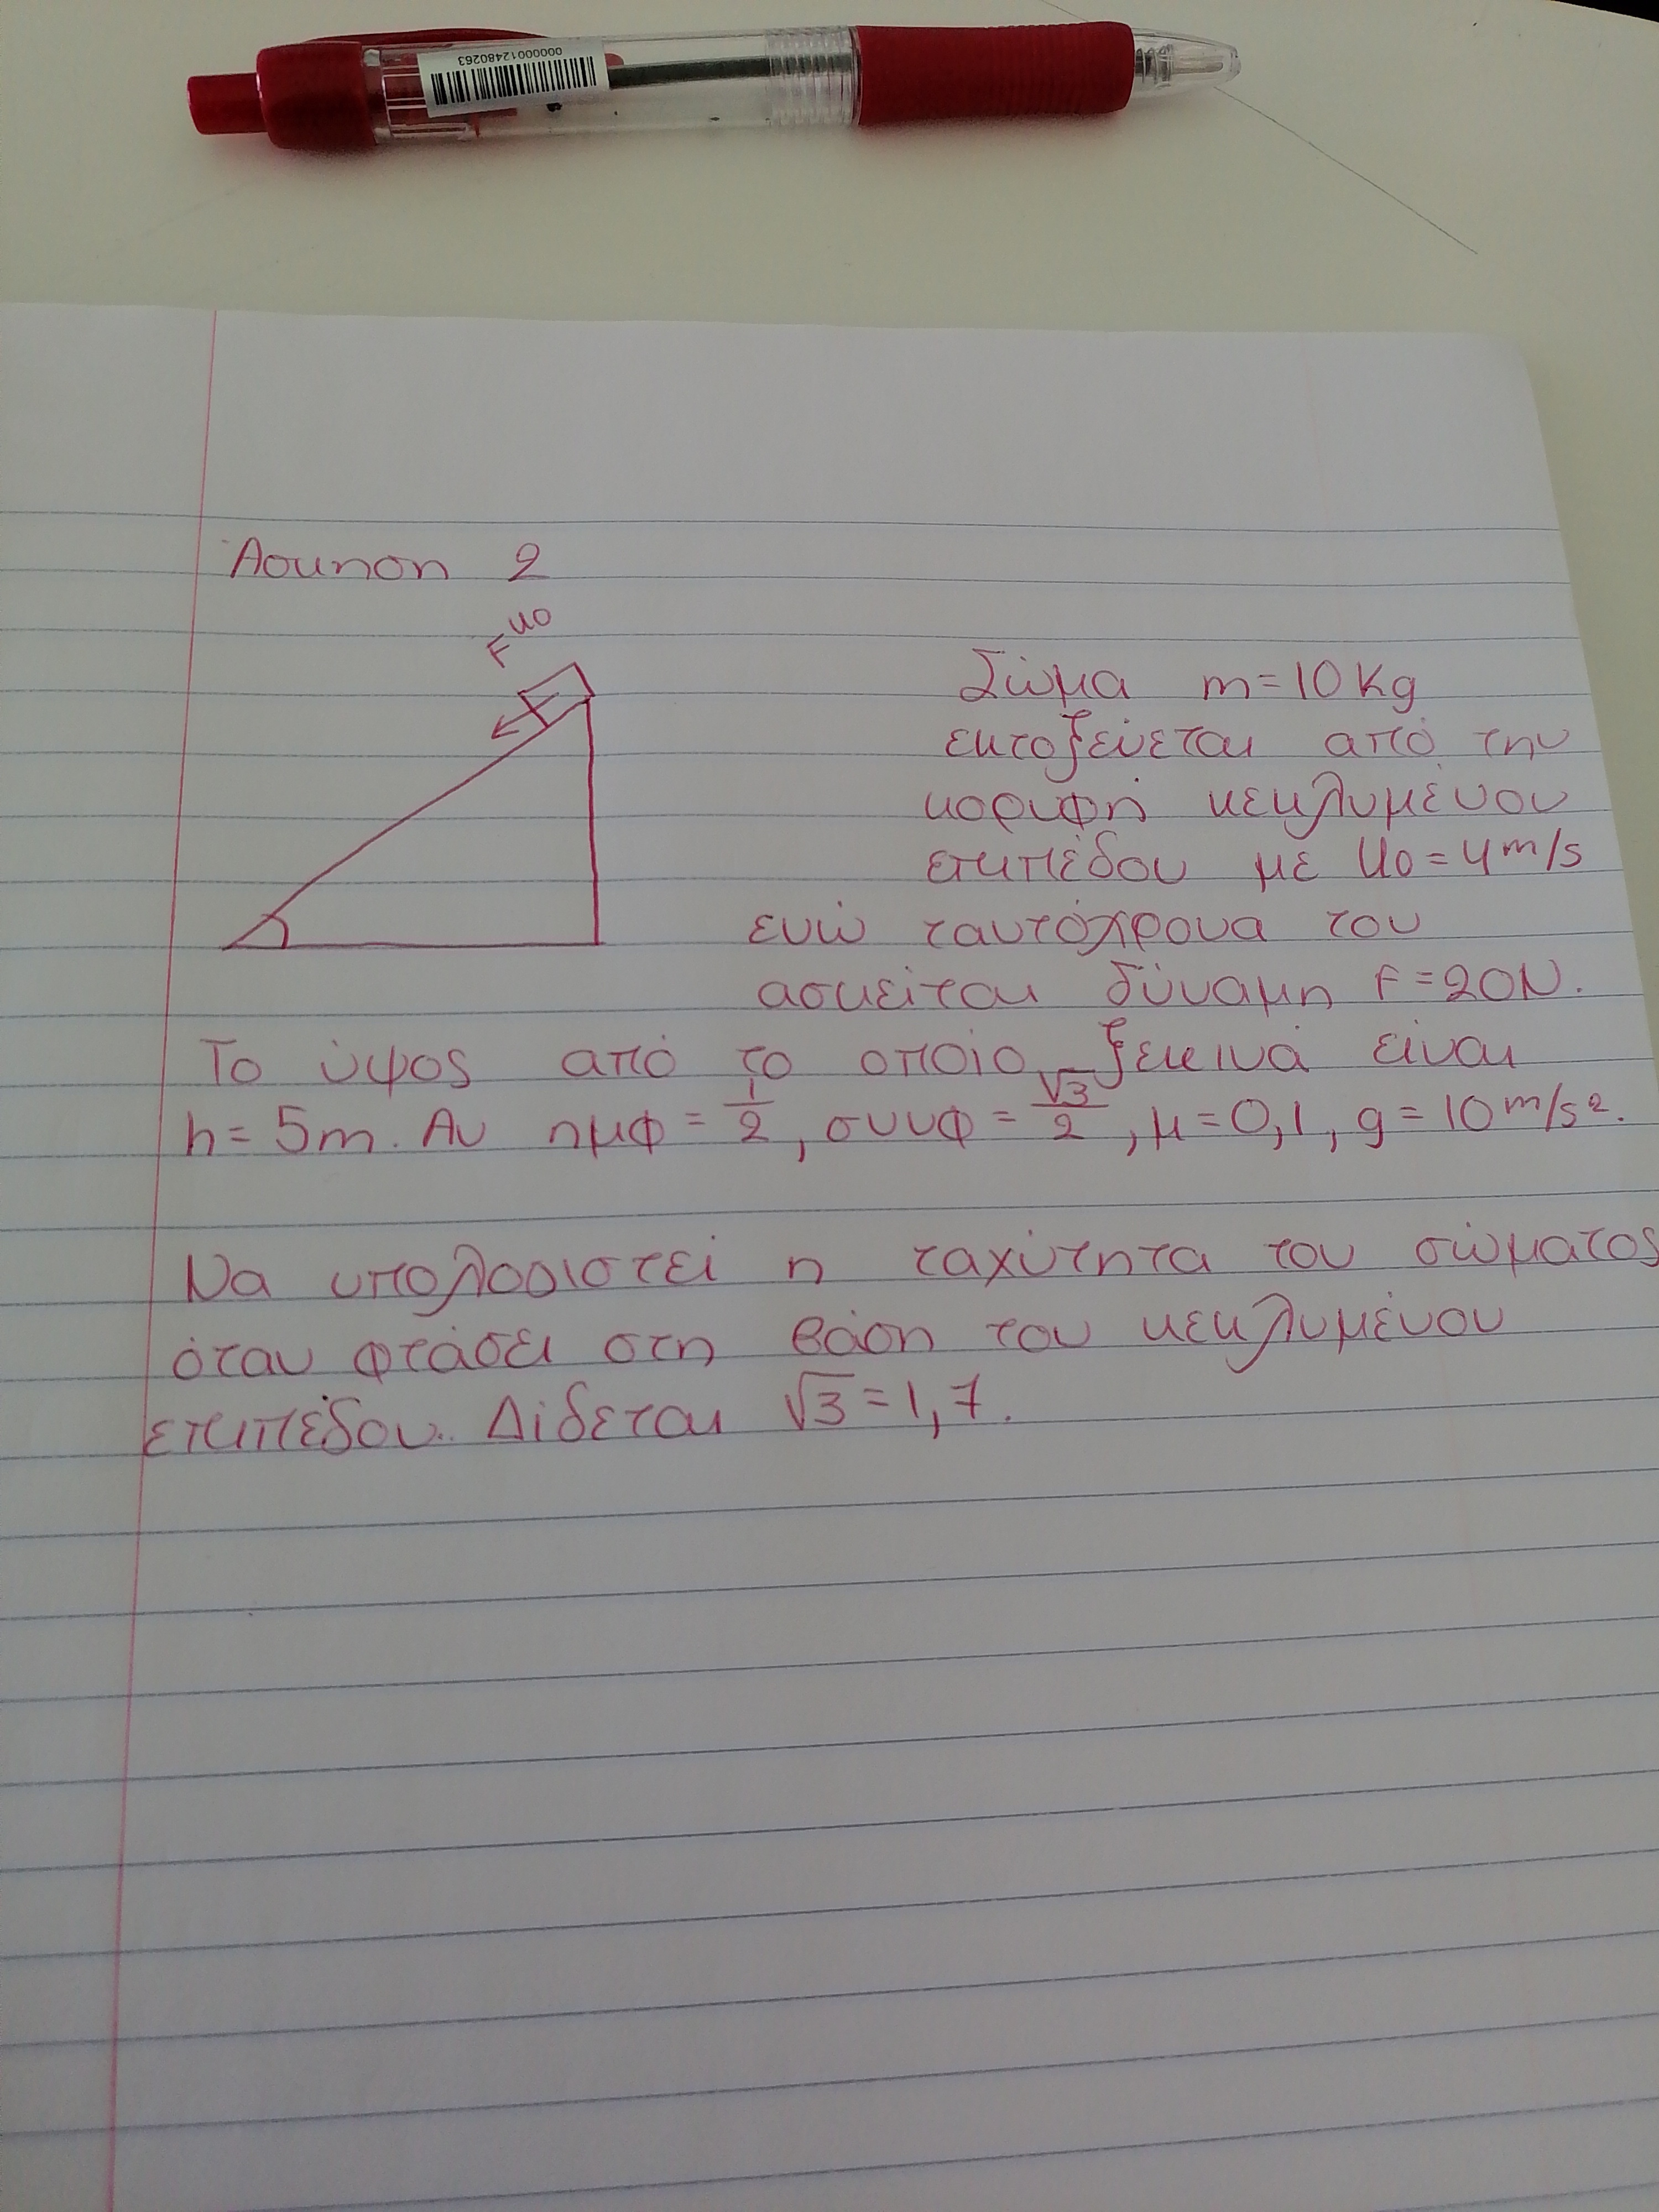 0000012480263
Άσκηση 2
F υ0
Σώμα m=10Kg
εκτοξεύεται από την
κορυφή κεκλυμένου
επιπέδου με υ0=4m/s
ενώ ταυτόχρονα του
ασκείται δύναμη F=20N.
Το ύψος από το οποίο ξεκινά είναι
h=5m. Αν ημφ=1/2, συνφ=√3/2, μ=0,1, g=10m/s².
Να υπολογιστεί η ταχύτητα του σώματος
όταν φτάσει στη βάση του κεκλυμένου
επιπέδου. Δίδεται √3=1,7.